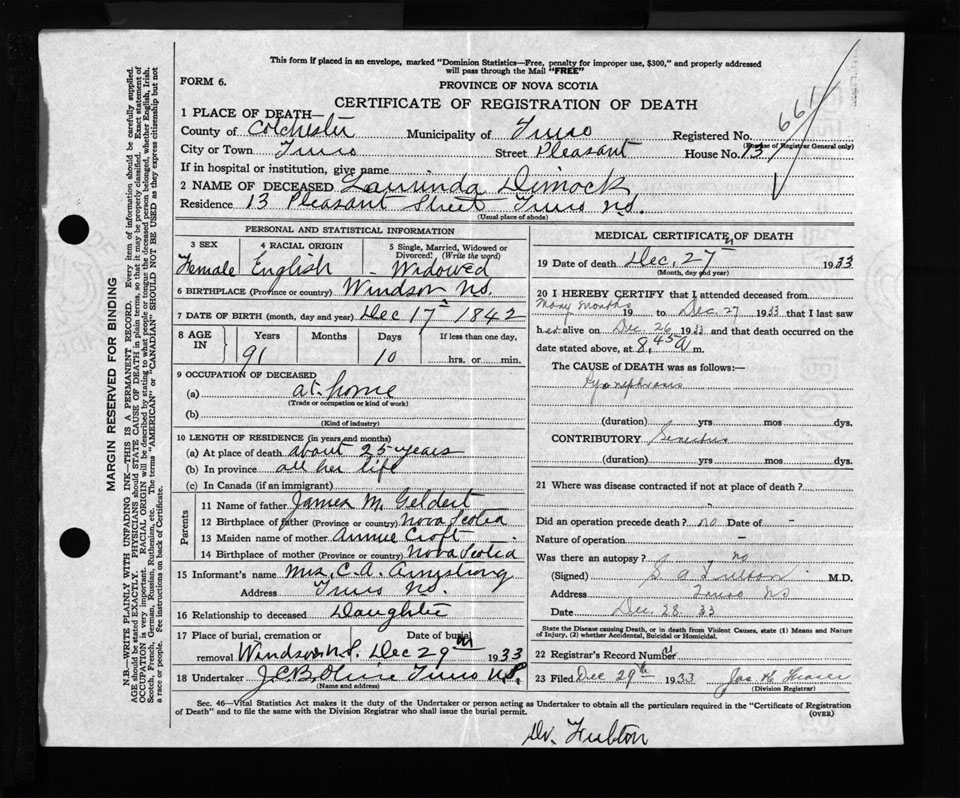 This form if placed in an envelope, marked "Dominion Statistics—Free, penalty for improper use, $300," and properly addressed
will pass through the Mail "FREE"
FORM 6.
PROVINCE OF NOVA SCOTIA
CERTIFICATE OF REGISTRATION OF DEATH
661
1 PLACE OF DEATH—
County of Colchester Municipality of Truro Registered No.
(For use of Registrar General only)
City or Town Truro Street Pleasant House No. 13
If in hospital or institution, give name
2 NAME OF DECEASED Laurinda Dimock
Residence 13 Pleasant Street Truro N.S.
(Usual place of abode)
PERSONAL AND STATISTICAL INFORMATION
3 SEX 4 RACIAL ORIGIN 5 Single, Married, Widowed or
Divorced? (Write the word)
Female English - Widowed
6 BIRTHPLACE (Province or country) Windsor, N.S.
7 DATE OF BIRTH (month, day and year) Dec 17th 1842
8 AGE IN Years Months Days If less than one day,
91 10 hrs. or min.
9 OCCUPATION OF DECEASED
(a) at home
(Trade or occupation or kind of work)
(b)
(Kind of industry)
10 LENGTH OF RESIDENCE (in years and months)
(a) At place of death about 25 years
(b) In province all her life
(c) In Canada (if an immigrant)
Parents
11 Name of father James M. Geldert
12 Birthplace of father (Province or country) Nova Scotia
13 Maiden name of mother Annie Croft
14 Birthplace of mother (Province or country) Nova Scotia
15 Informant's name Mrs. C. A. Armstrong
Address Truro N.S.
16 Relationship to deceased Daughter
17 Place of burial, cremation or Date of burial
removal Windsor N.S. Dec 29th 1933
18 Undertaker Truro N.S.
(Name and address)
MEDICAL CERTIFICATE OF DEATH
19 Date of death Dec. 27th 1933
(Month, day and year)
20 I HEREBY CERTIFY that I attended deceased from
Many months 19 to Dec 27 1933 that I last saw
her alive on Dec. 26 1933 and that death occurred on
date stated above, at 8,45 a m.
The CAUSE of DEATH was as follows:—
(duration) yrs mos dys.
CONTRIBUTORY
(duration) yrs mos dys.
21 Where was disease contracted if not at place of death?
Did an operation precede death? no Date of -
Nature of operation -
Was there an autopsy? no
(Signed) S a Fulton M.D.
Address Truro NS
Date Dec. 28. 33
State the Disease causing Death, or in death from Violent Causes, state (1) Means and Nature
of Injury, (2) whether Accidental, Suicidal or Homicidal.
22 Registrar's Record Number
23 Filed Dec 29th 1933 Jas H Fraser
(Division Registrar)
Sec. 46—Vital Statistics Act makes it the duty of the Undertaker or person acting as Undertaker to obtain all the particulars required in the "Certificate of Registration
of Death" and to file the same with the Division Registrar who shall issue the burial permit.
(OVER)
Dr. Fulton
MARGIN RESERVED FOR BINDING
N.B.—WRITE PLAINLY WITH UNFADING INK—THIS IS A PERMANENT RECORD. Every item of information should be carefully supplied.
AGE should be stated EXACTLY. PHYSICIANS should STATE CAUSE OF DEATH in plain terms, so that it may be properly classified. Exact statement of
OCCUPATION is very important. RACIAL ORIGIN will be described by stating to what people or tongue the deceased person belonged, whether English, Irish,
Scotch, French, German, Russian, Ruthenian, etc. The terms "AMERICAN" or "CANADIAN" SHOULD NOT BE USED as they express citizenship but not
a race or people. See instructions on back of Certificate.